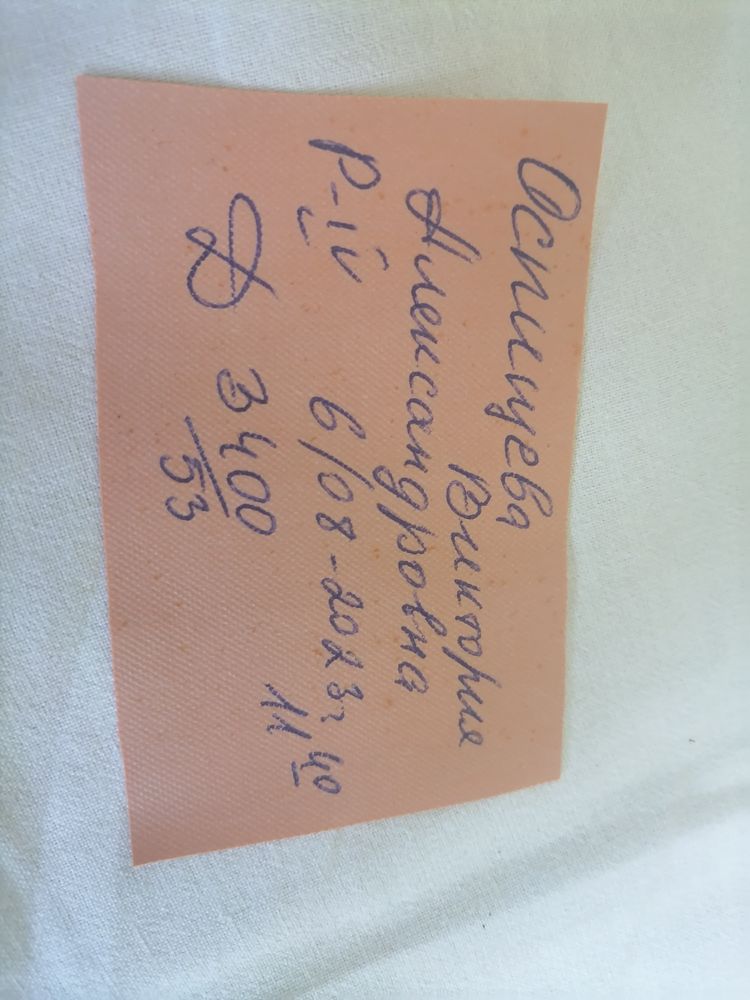 Оспищева
Виктория
Александровна
Р-IV 6/08-2023г 11 40
Д 3400/53